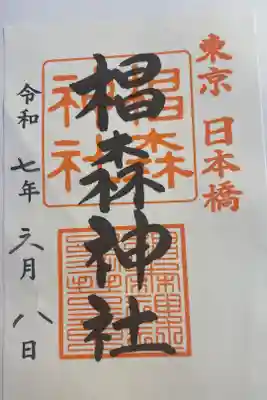 東京 日本橋
椙森神社
椙森
神社
令和七年六月八日